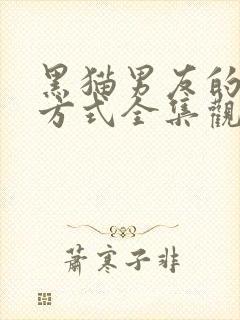 黑猫男友的
方式全集觀
蕭寒子非